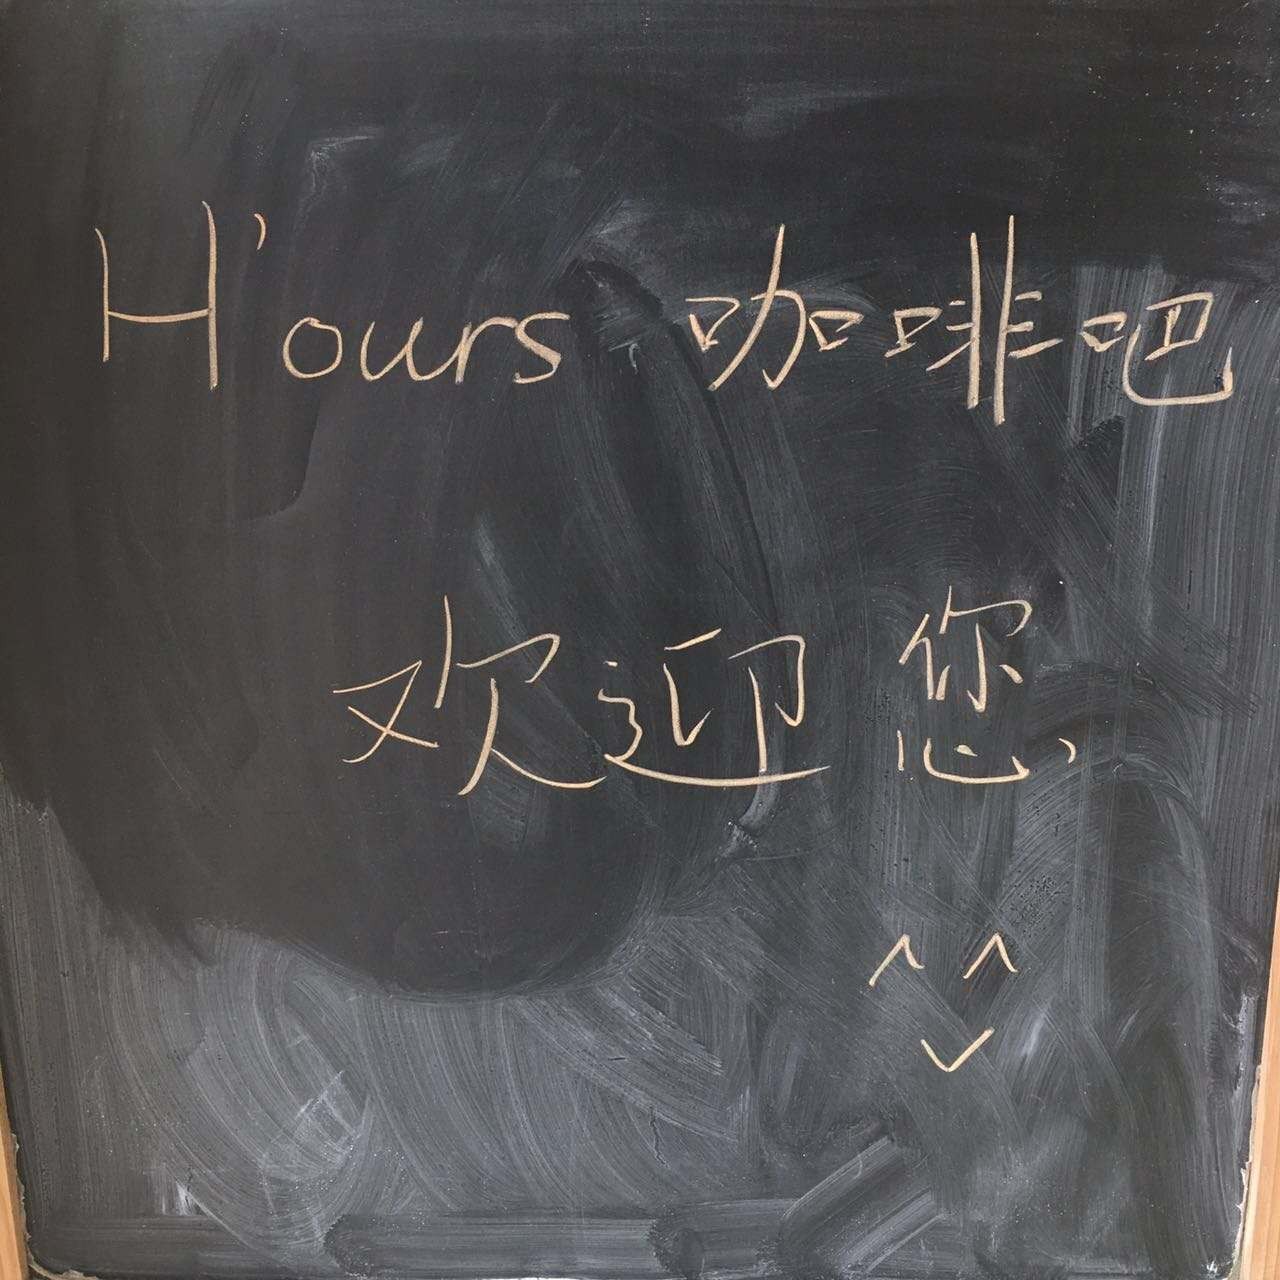 H'ours 咖啡吧
欢迎 您